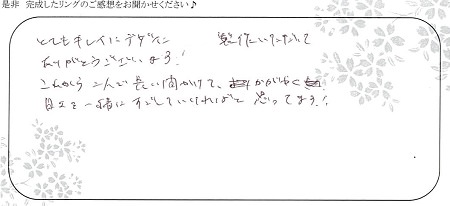 是非 完成したリングのご感想をお聞かせください♪
とてもキレイにデザイン 製作いただいて
ありがとうございます!
これから二人で長い時間かけて、かがやく
日々を一緒にすごしていければと思ってます!